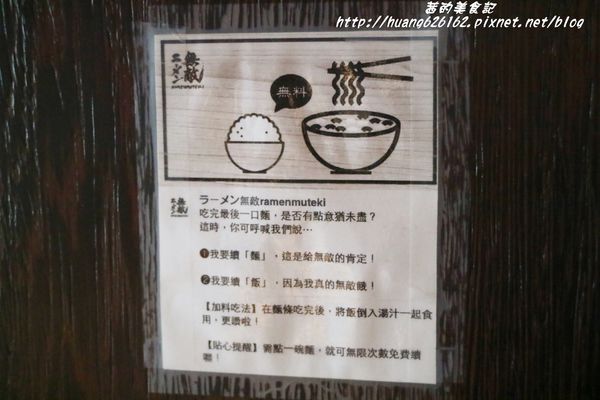 茗的美食記
http://huang626162.pixnet.net/blog
無敵
ラーメン
RAMENMUTEKI
無料
無敵
ラーメン
ラーメン無敵ramenmuteki
吃完最後一口麵，是否有點意猶未盡？
這時，你可呼喊我們說⋯
❶我要續「麵」，這是給無敵的肯定！
❷我要續「飯」，因為我真的無敵餓！
【加料吃法】在麵條吃完後，將飯倒入湯汁一起食
用，更讚啦！
【貼心提醒】需點一碗麵，就可無限次數免費續
喔！